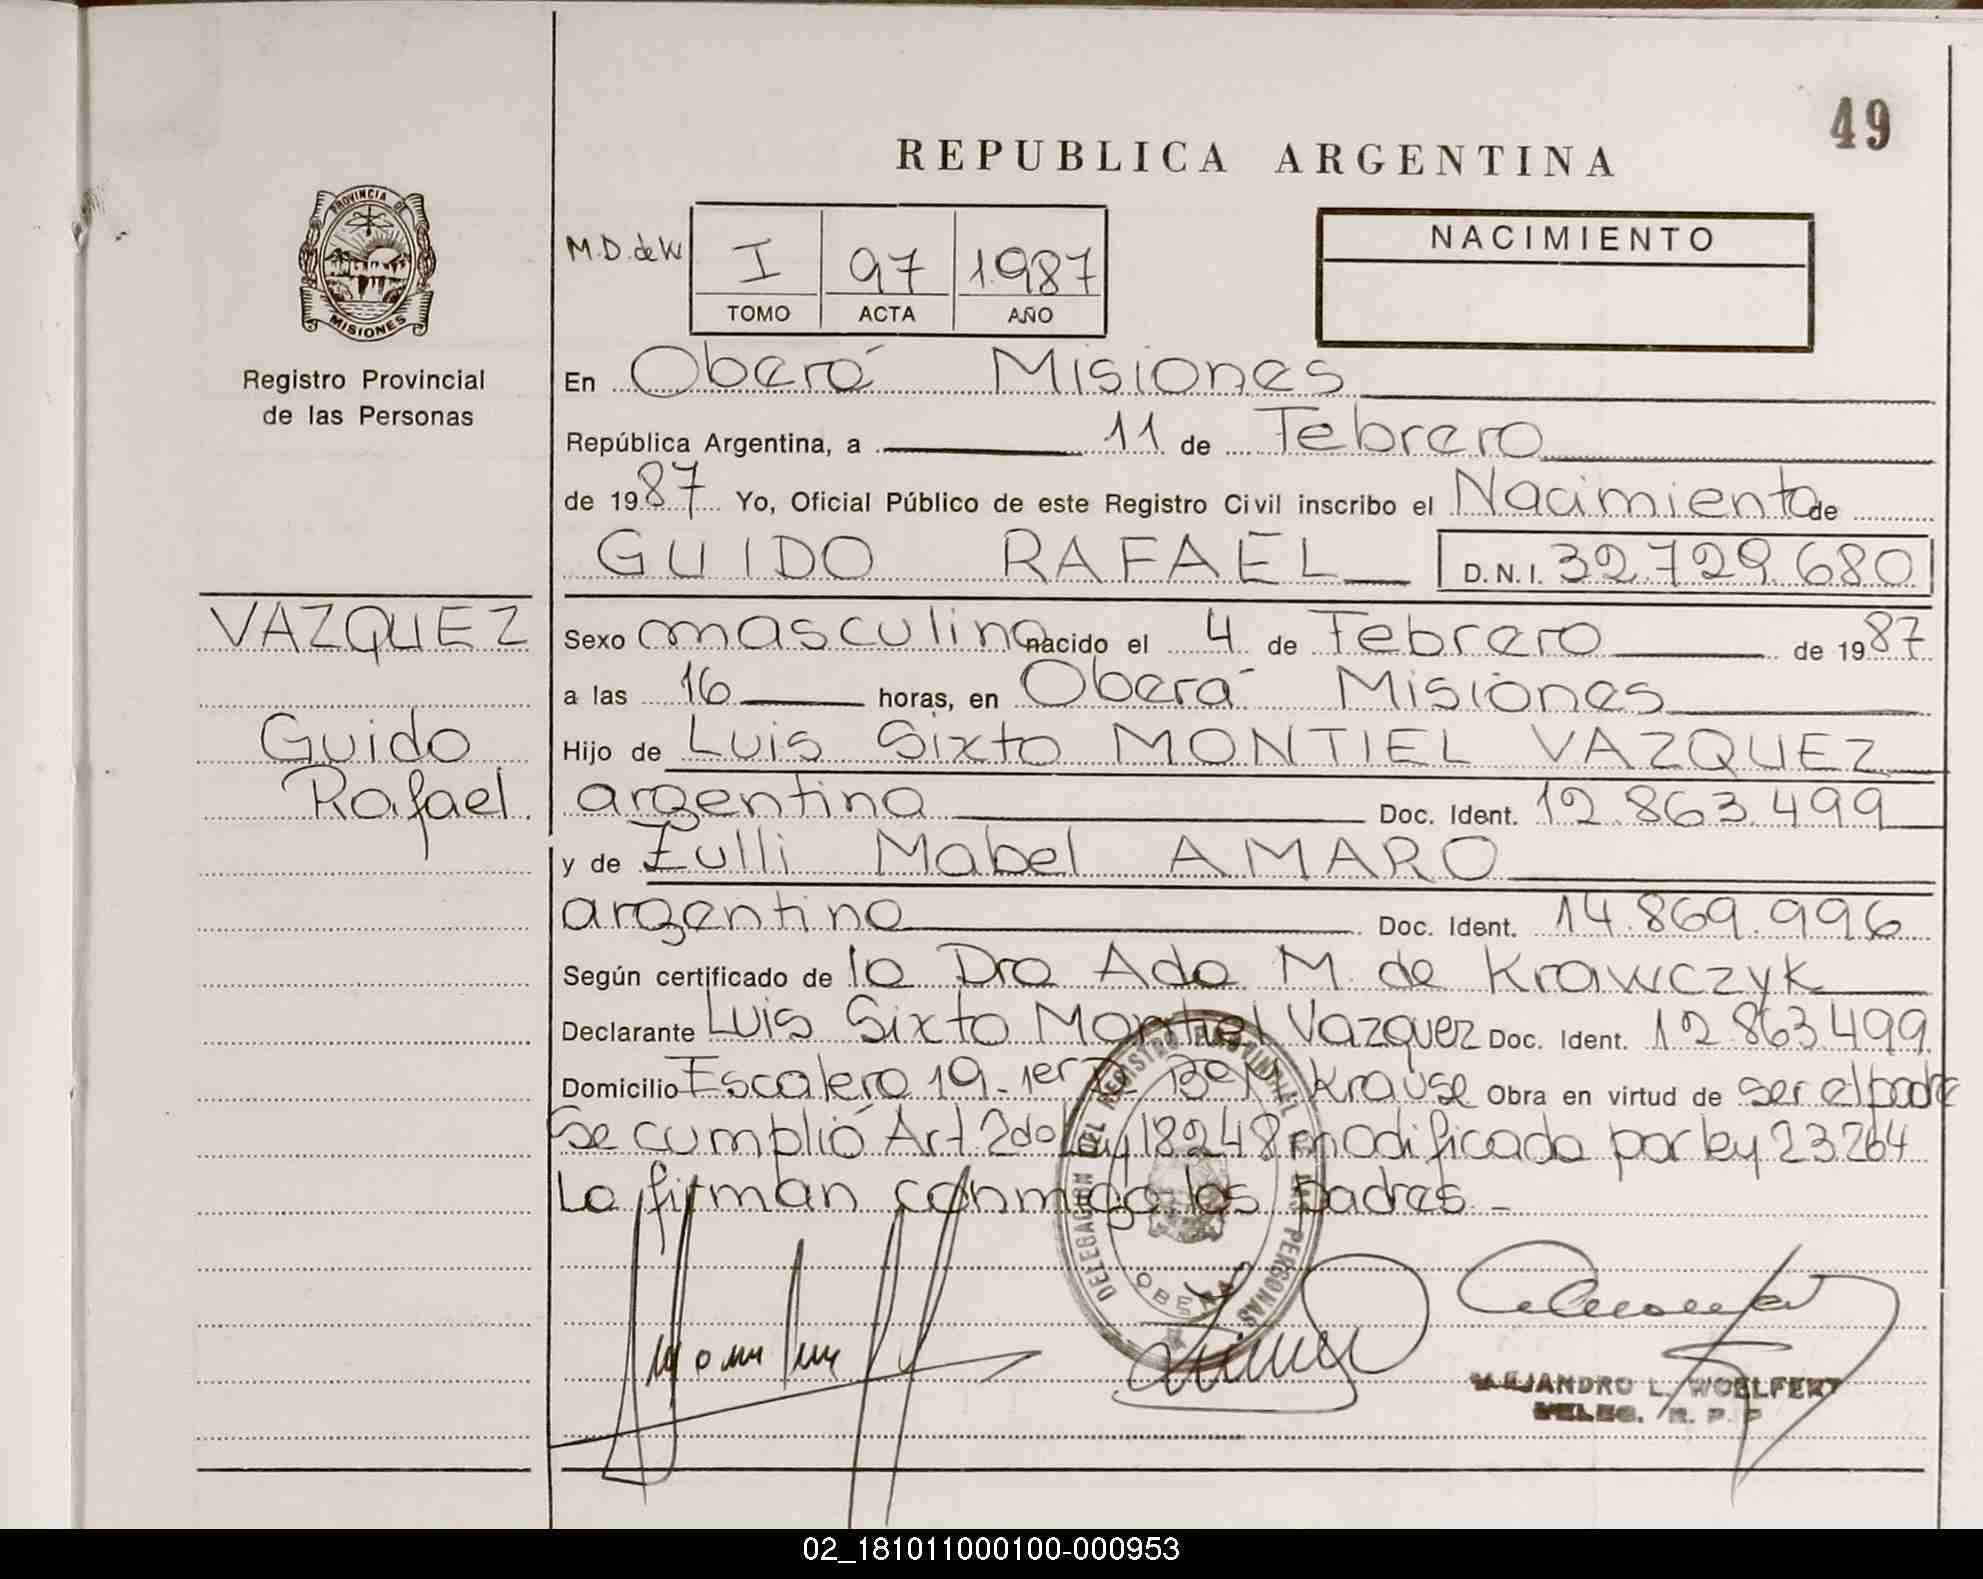 49
REPUBLICA ARGENTINA
PROVINCIA DE
MISIONES
Registro Provincial
de las Personas
M.D. de K
I 97 1.987
TOMO ACTA AÑO
NACIMIENTO
En Oberá Misiones
República Argentina, a 11 de Febrero
de 1987 Yo, Oficial Público de este Registro Civil inscribo el Nacimiento de
GUIDO RAFAEL D.N.I. 32.729.680
VAZQUEZ
Guido
Rafael
Sexo masculino nacido el 4 de Febrero de 1987
a las 16 horas, en Oberá Misiones
Hijo de Luis Sixto MONTIEL VAZQUEZ
argentina Doc. Ident. 12.863.499
y de Zulli Mabel AMARO
argentina Doc. Ident. 14.869.996
Según certificado de la Dra Ada M. de Krawczyk
Declarante Luis Sixto Montiel Vazquez Doc. Ident. 12.863.499
Domicilio Escalera 19-1er Krause Obra en virtud de ser el padre
Se cumplió Art. 2do Ley 18248 modificada por ley 23.264
La firman conmigo los padres.-
DELEGACION DEL REGISTRO PROVINCIAL DE LAS PERSONAS
OBERA
ALEJANDRO L. WOELFERT
DELEG. R. P. P
02_181011000100-000953